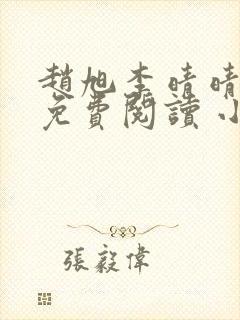 趙旭李晴晴
免費閱讀小
張毅偉